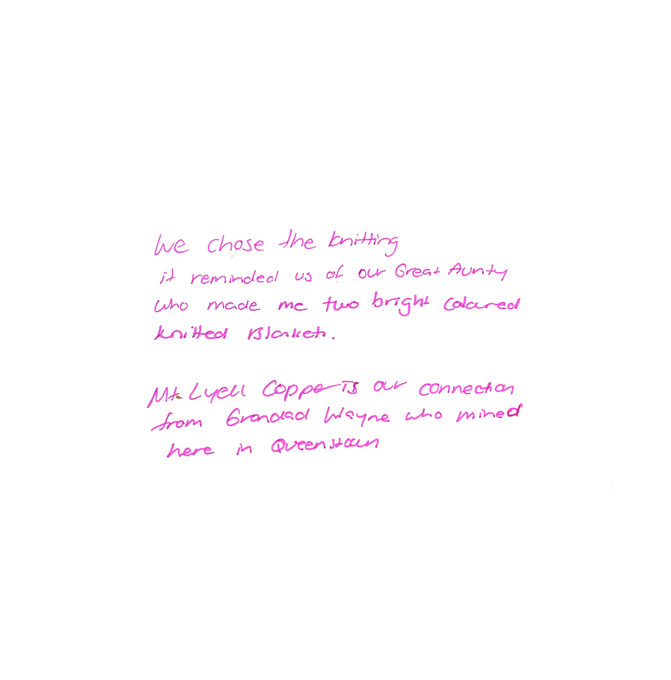 We chose the knitting
it reminded us of our Great Aunty
who made me two bright coloured
knitted Blankets.
Mt Lyell Copper is our connection
from Grandad Wayne who mined
here in Queenstown